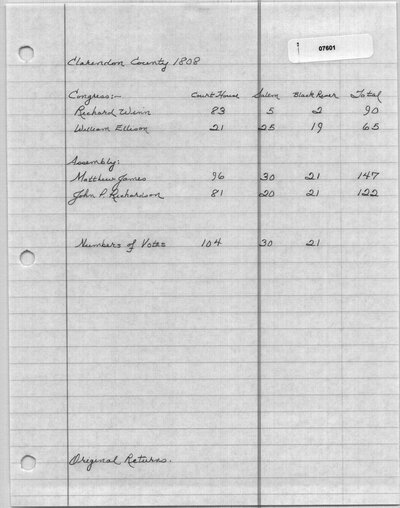 07601
Clarendon County 1808
Congress:- Court House Salem Black River Total
Richard Winn 83 5 2 90
William Ellison 21 25 19 65
Assembly:
Matthew James 96 30 21 147
John P. Richardson 81 20 21 122
Numbers of Votes 104 30 21
Original Returns.